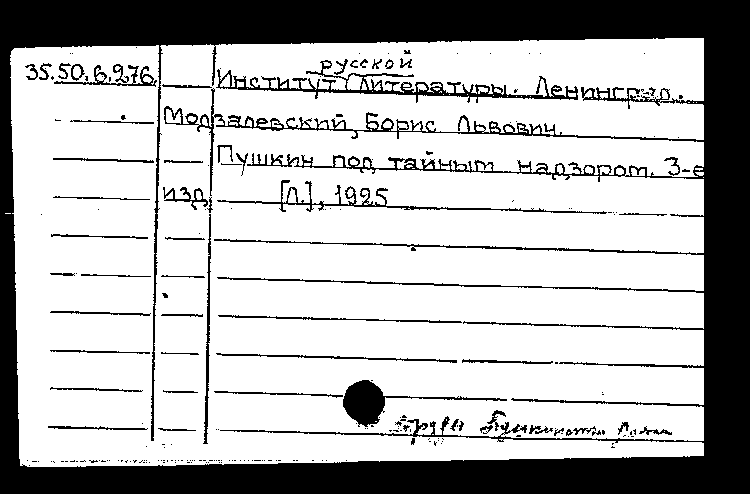 русской
35.50.6.276. Институт литературы. Ленинград.
Модзалевский, Борис Львович.
Пушкин под тайным надзором. 3-е
изд. [Л.], 1925
Труды Пушкинского Дома